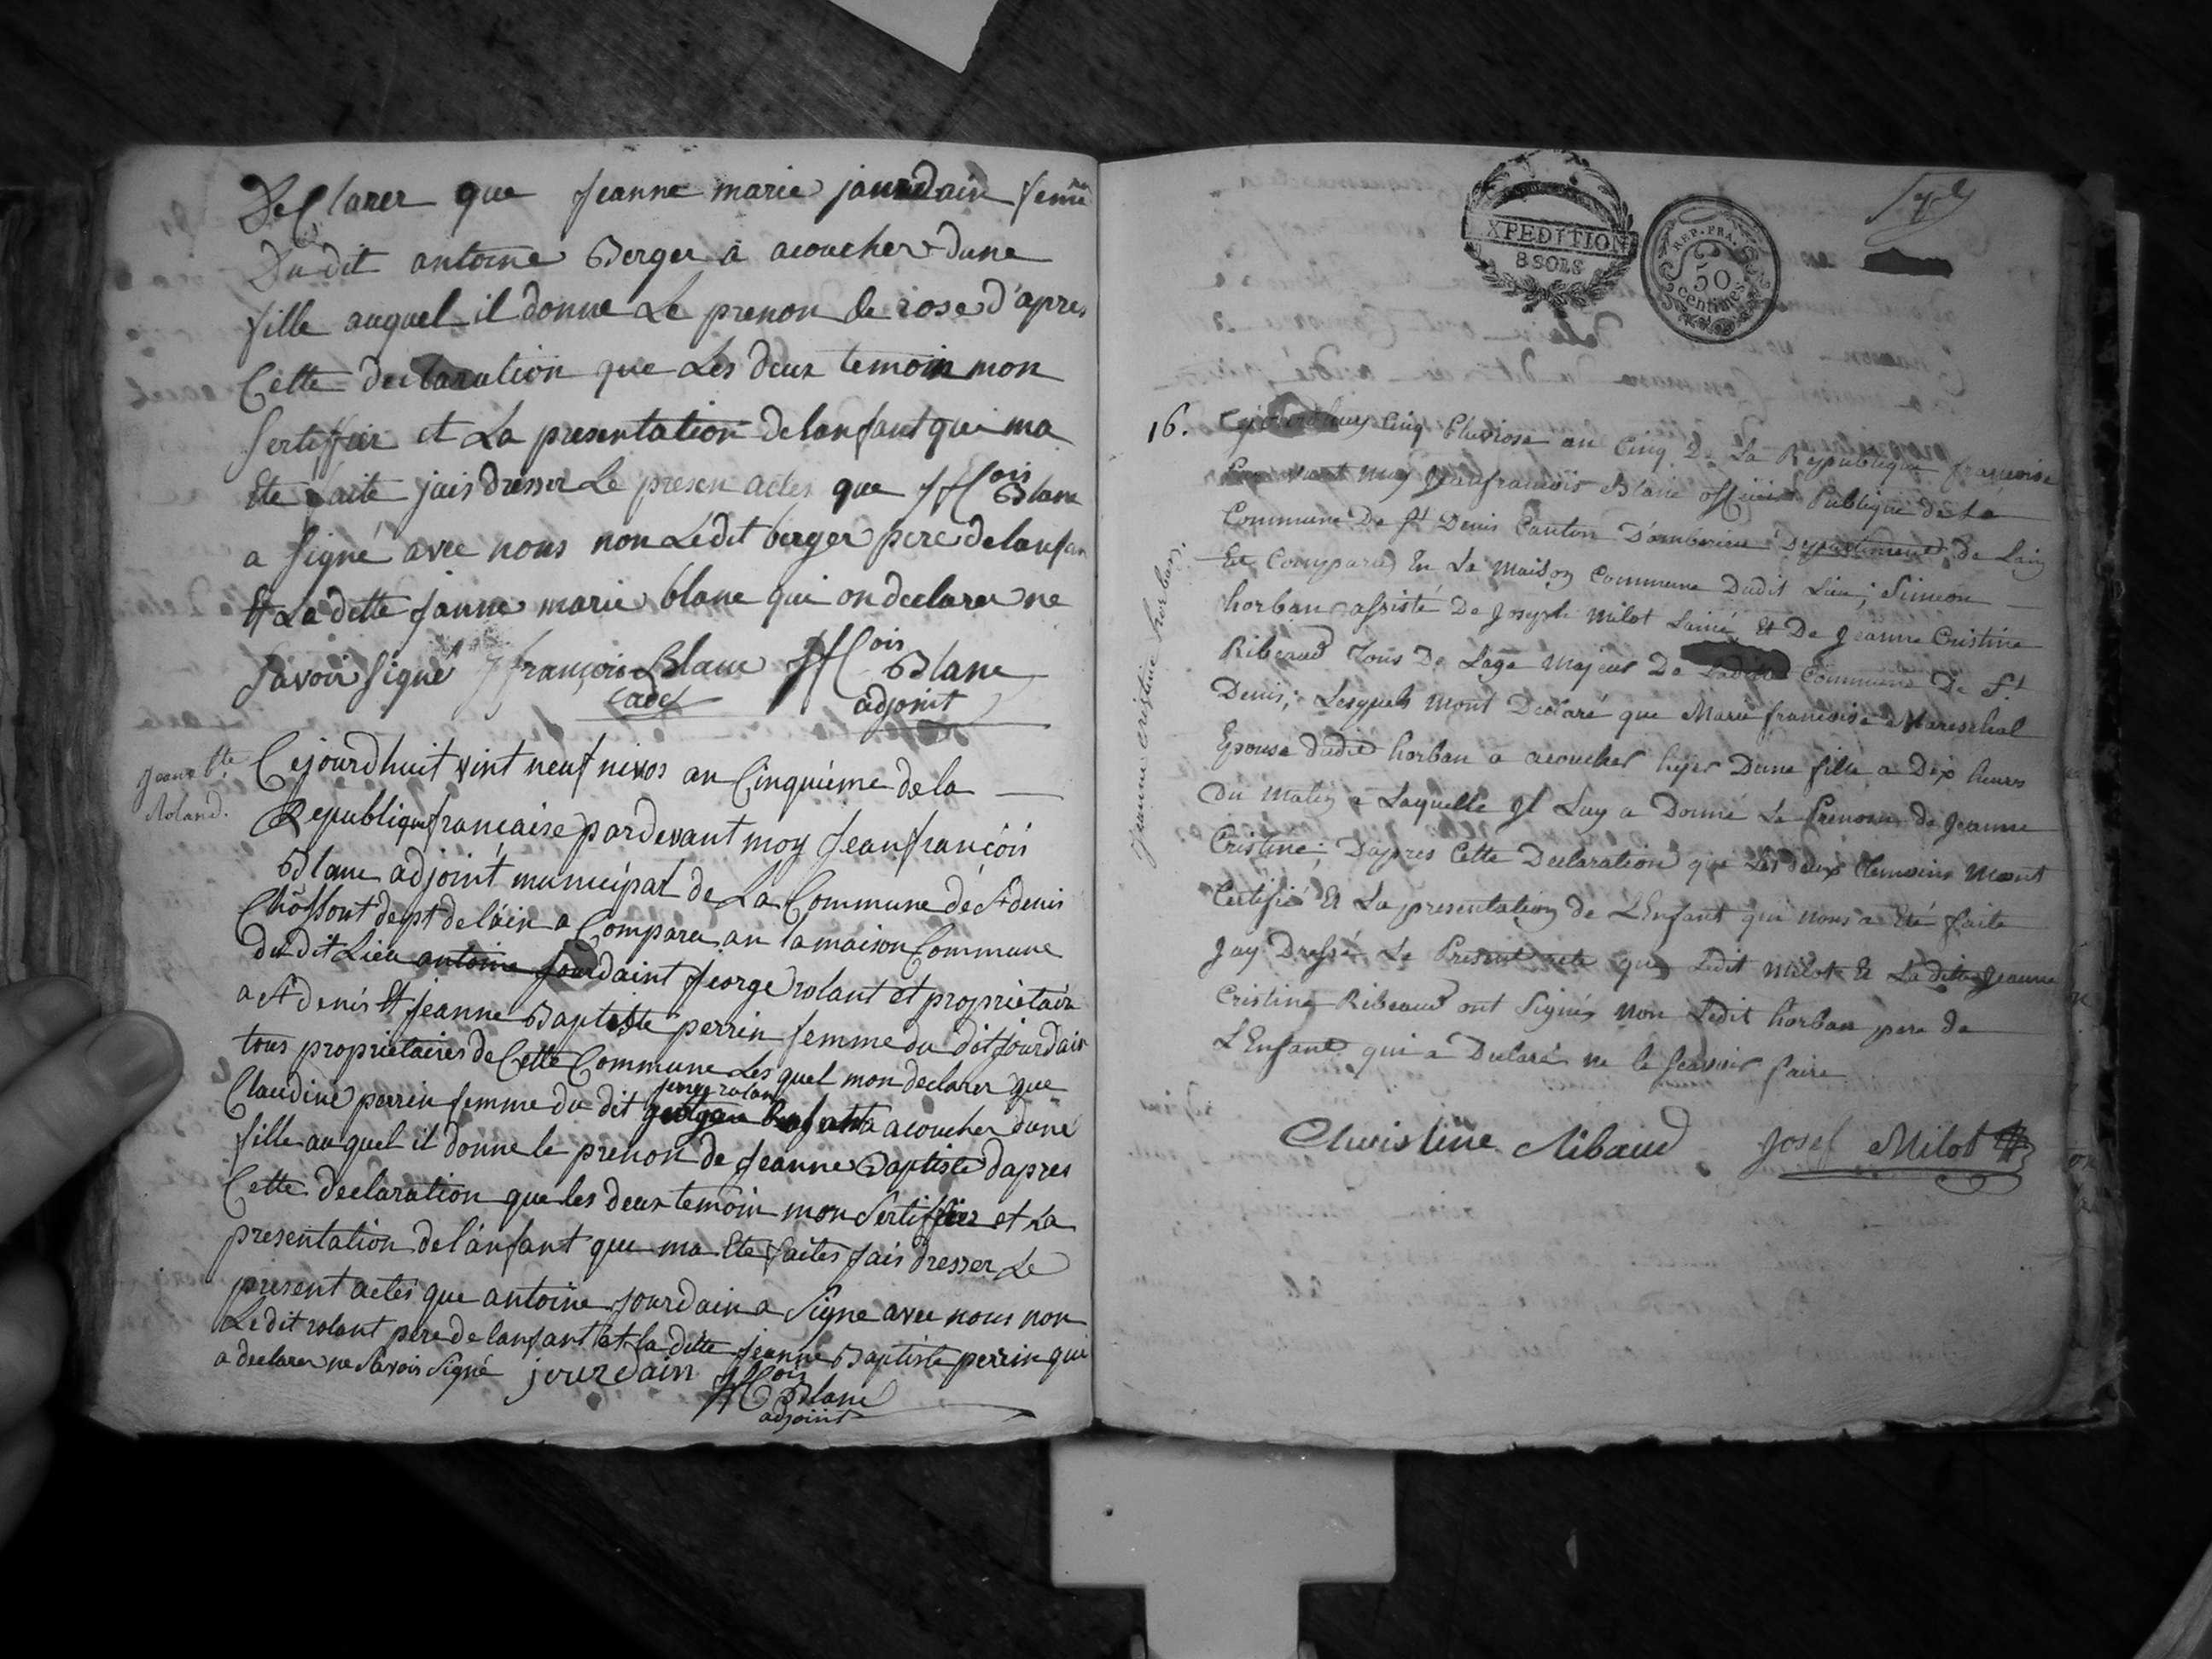 Declarer que jeanne marie jourdain femme
Du dit antoine Berger a acoucher dune
fille auquel il donne Le prenon de rose d'apres
Cette declaration que Les deux temoin mon
Sertiffier et La presentation delanfant qui ma
Ete faite jais dresser Le presen actes que jfois Blanc
a signé avec nous non Ledit berger pere delanfan
Et La ditte janne marie blanc qui on declarer ne
Savoir signé françois Blanc jfois Blanc
cadet adjoint
Jeane Bte
Roland.
Cejourdhuit vint neuf nivos an Cinquième de la
Republique francaise pardevant moy jean françois
Blanc adjoint municipal de La Commune de St denis
Chôssont dept de l'ain a Comparu an la maison Commune
du dit Lieu antoine jourdaint jeorge rolant et proprietair
a St denis Et jeanne Baptiste perrin femme du dit jourdain
tous proprietaires de Cette Commune Les quel mon declarer que
jeorge rolan
Claudine perrin femme du dit a acoucher dune
fille auquel il donne le prenon de jeanne Baptiste dapres
Cette declaration que les deux temoin mon Sertiffier et La
presentation de lanfant que ma Ete faites jais dresser Le
present actes que antoine jourdain a Signe avec nous non
Ledit rolant pere de lanfant et la ditte jeanne Baptiste perrin qui
a declarer ne Savoir Signé jourdain jfois Blanc
adjoint
XPEDITION
8 SOLS
REP. FRA.
50
centimes
16.
Jeanne cristine horban.
Cejourdhuy Cinq Pluviose an Cinq De La Republique francoise
Par devant moy Jean francois Blanc officier Publique de La
Commune De St Denis Canton D'amberieu Departement de Lain
Est Comparu En La Maison Commune Dudit Lieu; Simeon
horban assisté De Joseph Milot Lainé, Et De Jeanne Cristine
Ribeaud Tous De Lage Majeur De Ladite Commune De St
Denis; Lesquels Mont Declaré que Marie francoise Mareschal
Epouse dudit horban a acoucher hyer Dune fille a Dix heures
Du Matin a Laquelle Jl Luy a Donné Le Prenom de Jeanne
Cristine; Dapres Cette Declaration que Les deux Temoins Mont
Certifié Et La presentation de L'Enfant qui nous a Eté faite
Jay Dressé Le Present acte que Ledit Milot Et La ditte Jeanne
Cristine Ribeaud ont Signés Non Ledit horban pere de
L'Enfant qui a Declaré ne le scavoir faire
Christine Ribaud Josef Milot